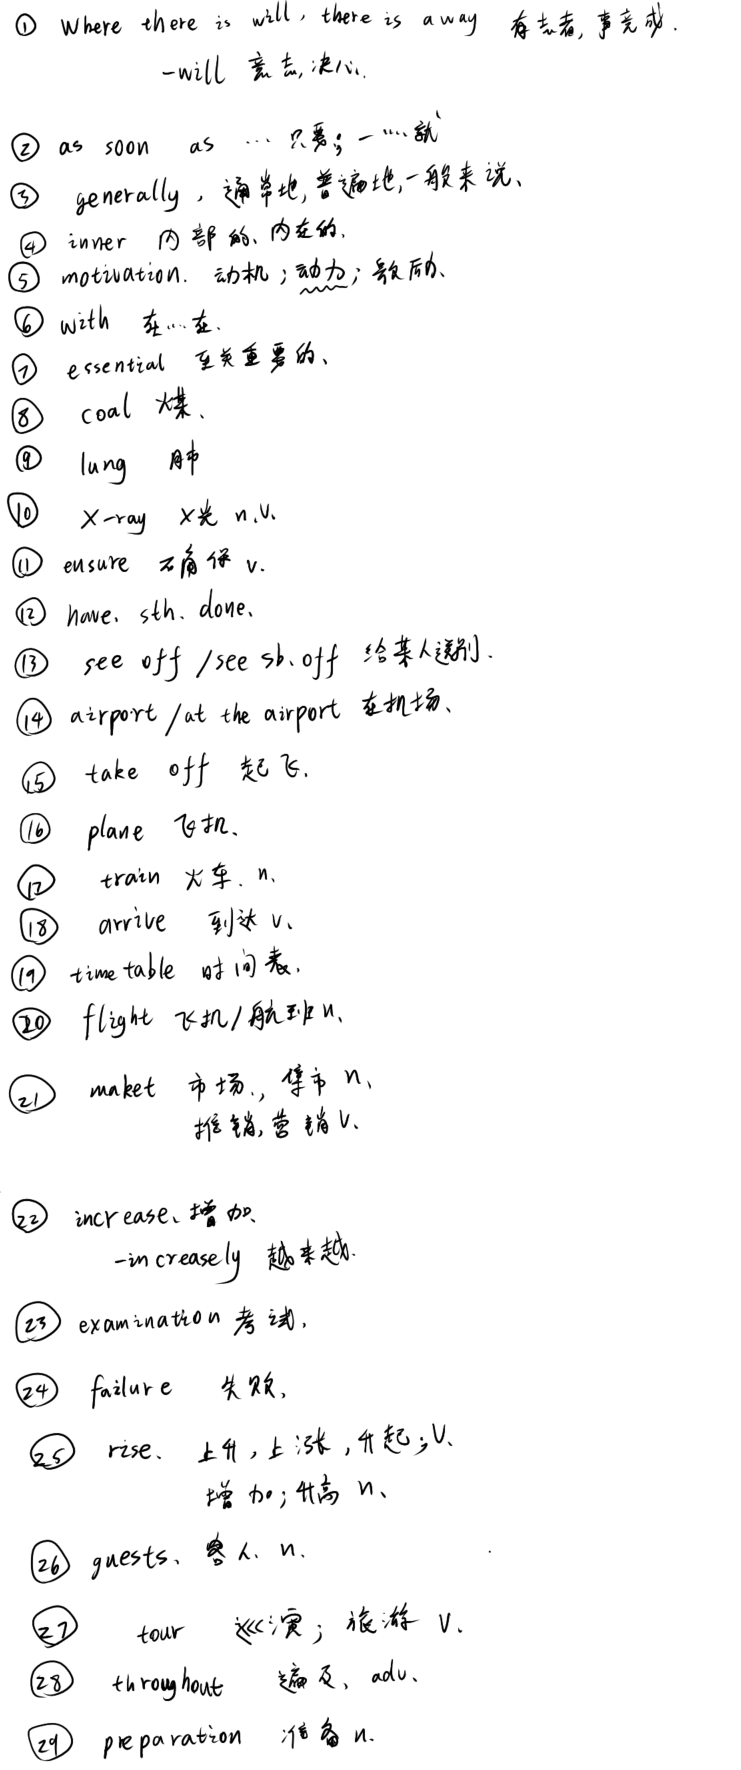 ① Where there is will, there is a way 有志者,事竟成.
-will 意志,决心.
② as soon as … 只要; 一……就
③ generally, 通常地,普遍地,一般来说、
④ inner 内部的、内在的.
⑤ motivation. 动机;动力;鼓励、
⑥ with 在…在.
⑦ essential 至关重要的、
⑧ coal 煤、
⑨ lung 肺
⑩ X-ray X光 n.v.
⑪ ensure 确保 v.
⑫ have. sth. done.
⑬ see off /see sb. off 给某人送别.
⑭ airport /at the airport 在机场、
⑮ take off 起飞.
⑯ plane 飞机、
⑰ train 火车. n.
⑱ arrive 到达 v.
⑲ timetable 时间表.
⑳ flight 飞机/航班 n、
㉑ maket 市场., 集市 n、
推销,营销 v、
㉒ increase、增加、
-increasely 越来越.
㉓ examination 考试.
㉔ failure 失败.
㉕ rise. 上升,上涨,升起;v.
增加;升高 n、
㉖ guests、客人. n.
㉗ tour 巡演; 旅游 v.
㉘ throughout 遍及、adv.
㉙ preparation 准备 n.